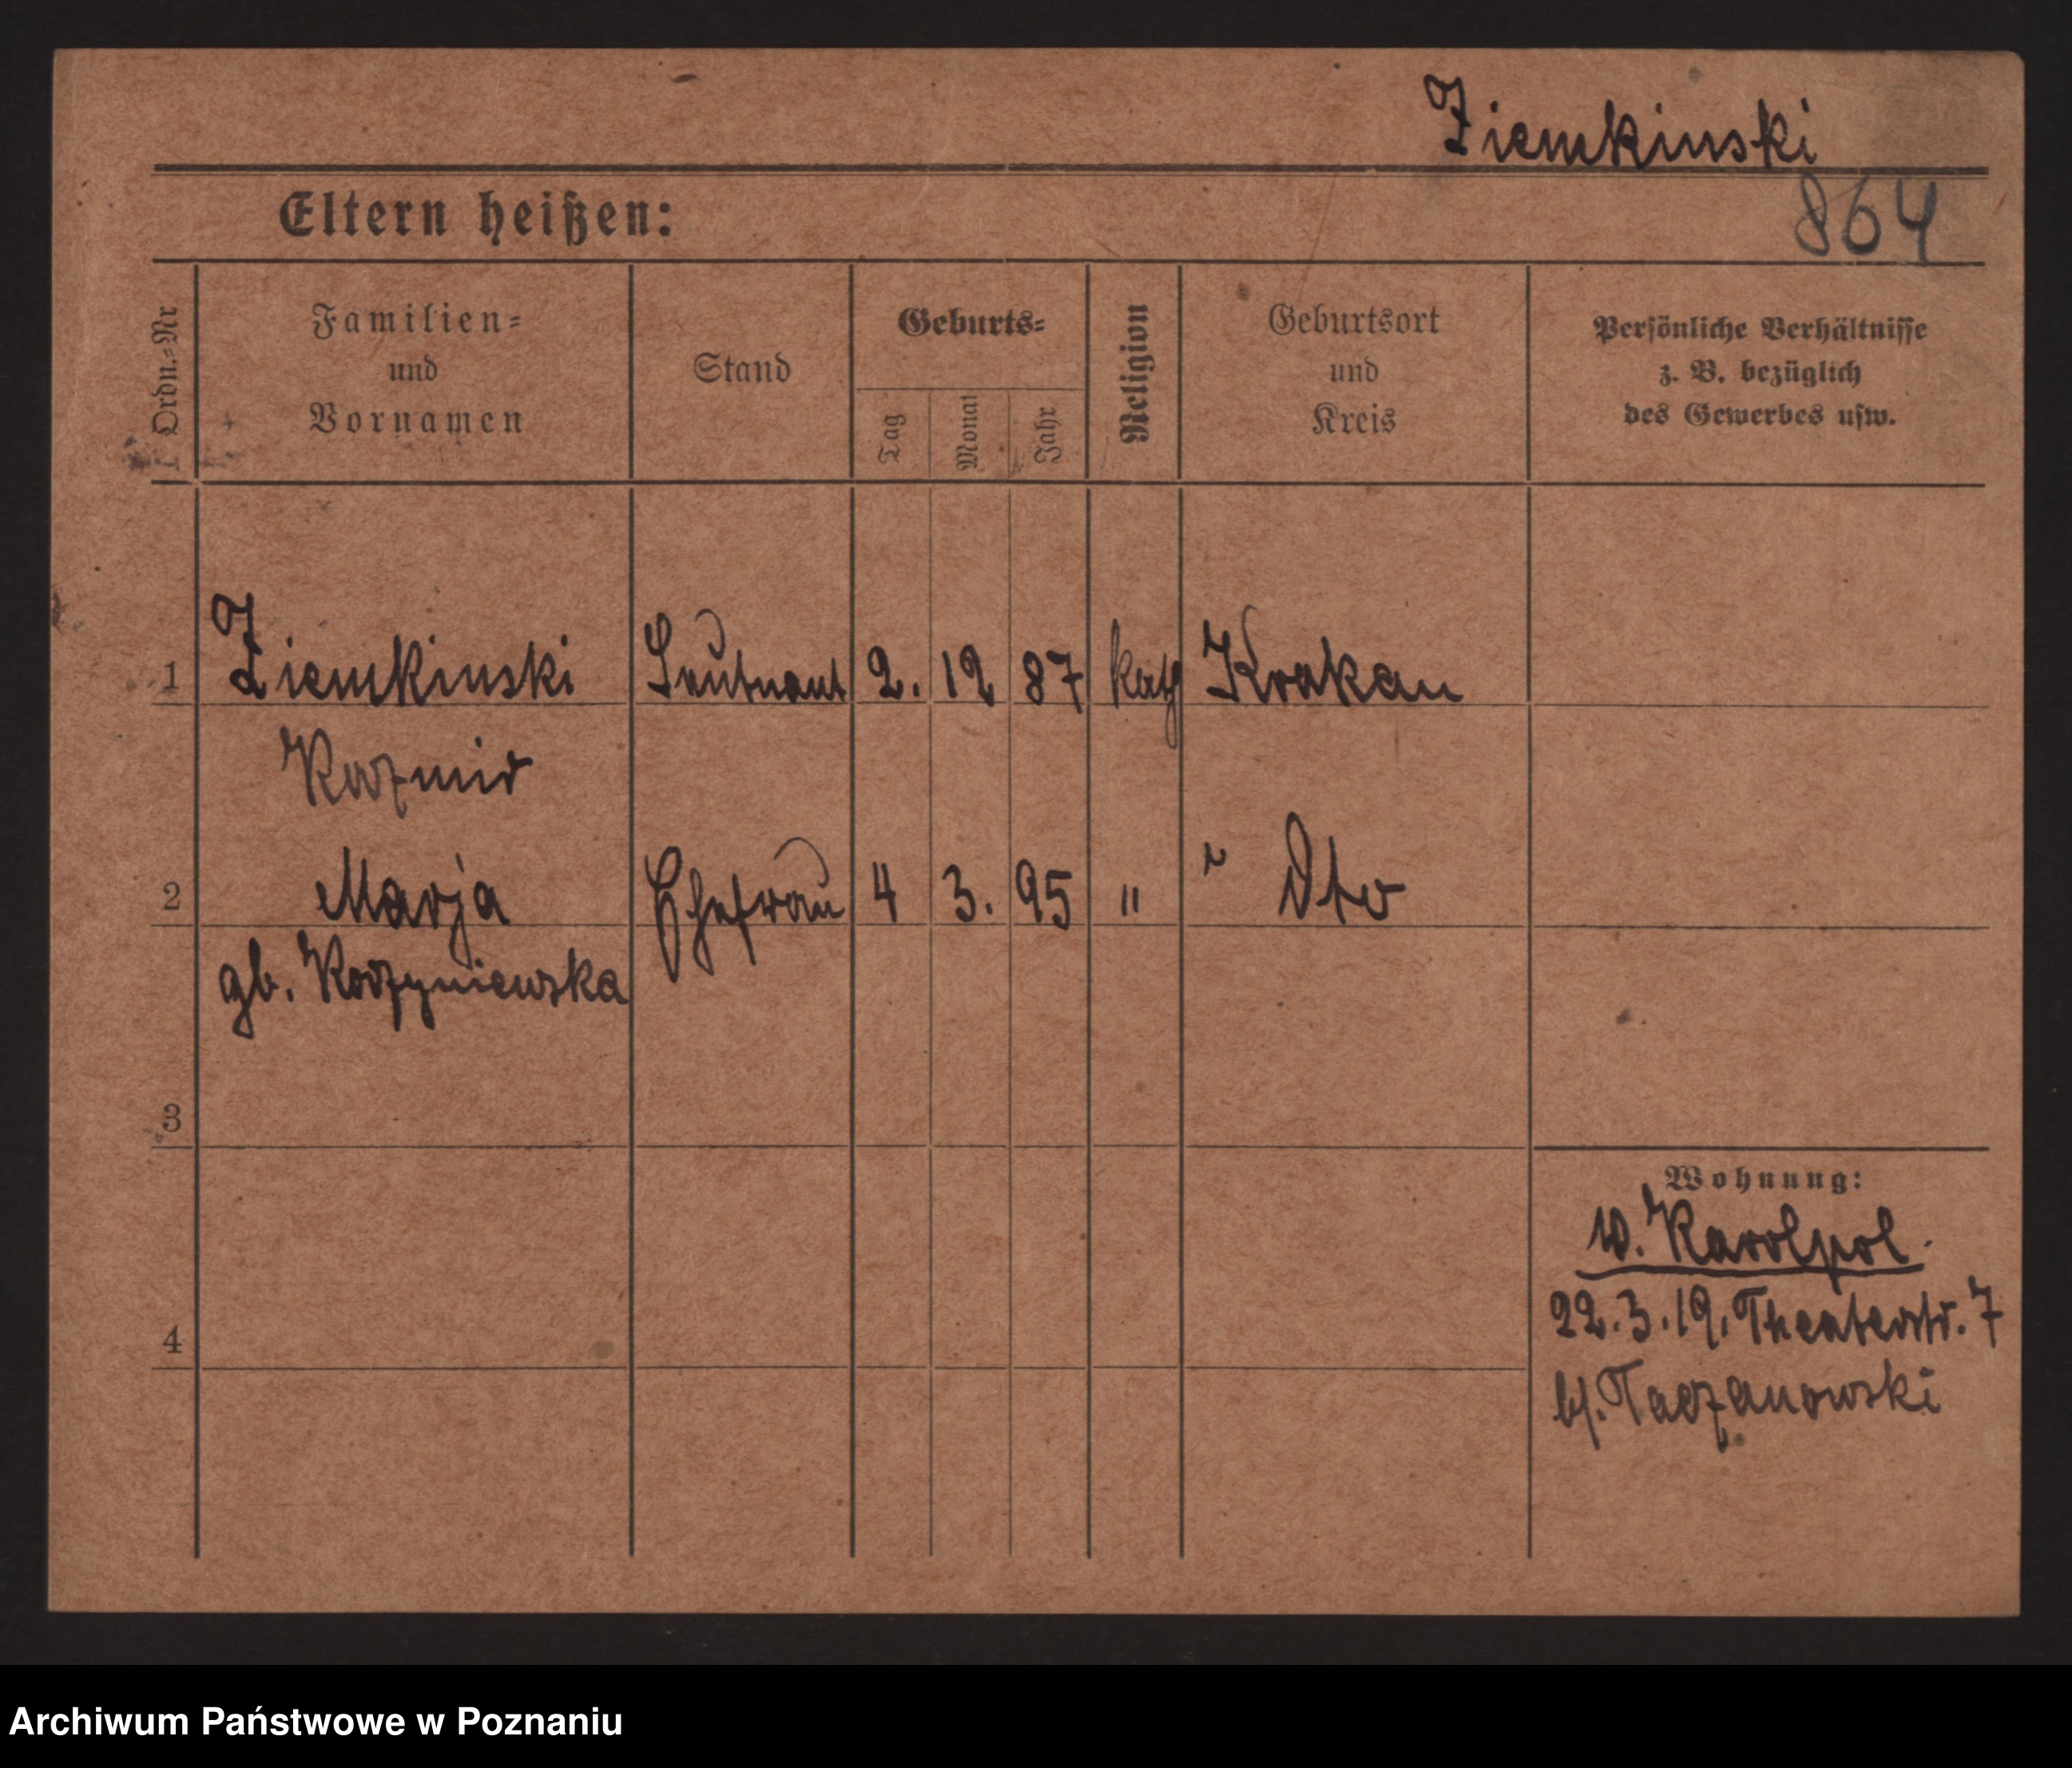 Ziemkinski
864
Eltern heißen:
Ordn.=Nr
Familien=
und
Vornamen
Stand
Geburts=
Tag
Monat
Jahr
Religion
Geburtsort
und
Kreis
Persönliche Verhältnisse
z. B. bezüglich
des Gewerbes usw.
1 Ziemkinski Leutnant 2. 12 87 kath Krakau
Kazmir
2 Marja Ehefrau 4 3. 95 " " Dto
gb.
3
Wohnung:
w. Karolpol.
22.3.19. Theaterstr. 7
4
b/. Taczanowski
Archiwum Państwowe w Poznaniu